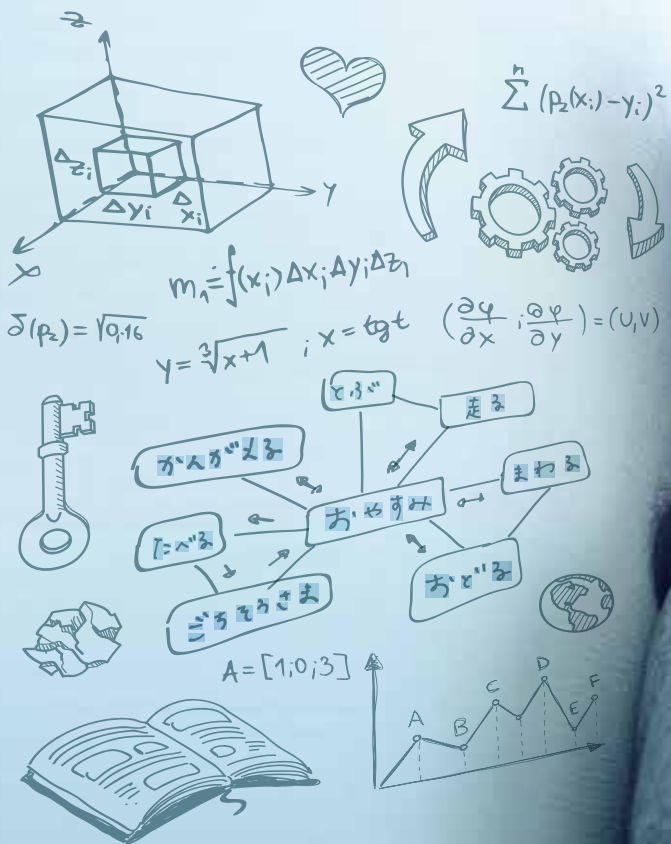 Z
Σ (p₂(xᵢ)-yᵢ)²
n
Δzᵢ
Δyᵢ
Δxᵢ
Y
X
m₁=∫(xᵢ)ΔxᵢΔyᵢΔz₁
δ(p₂)=√0,16
y=∛x+1 ; x=tgt
(∂φ/∂x ; ∂φ/∂y)=(U,V)
とぶ
走る
かんがえる
まわる
おやすみ
たべる
おどる
ごちそうさま
A=[1;0;3]
A
B
C
D
E
F